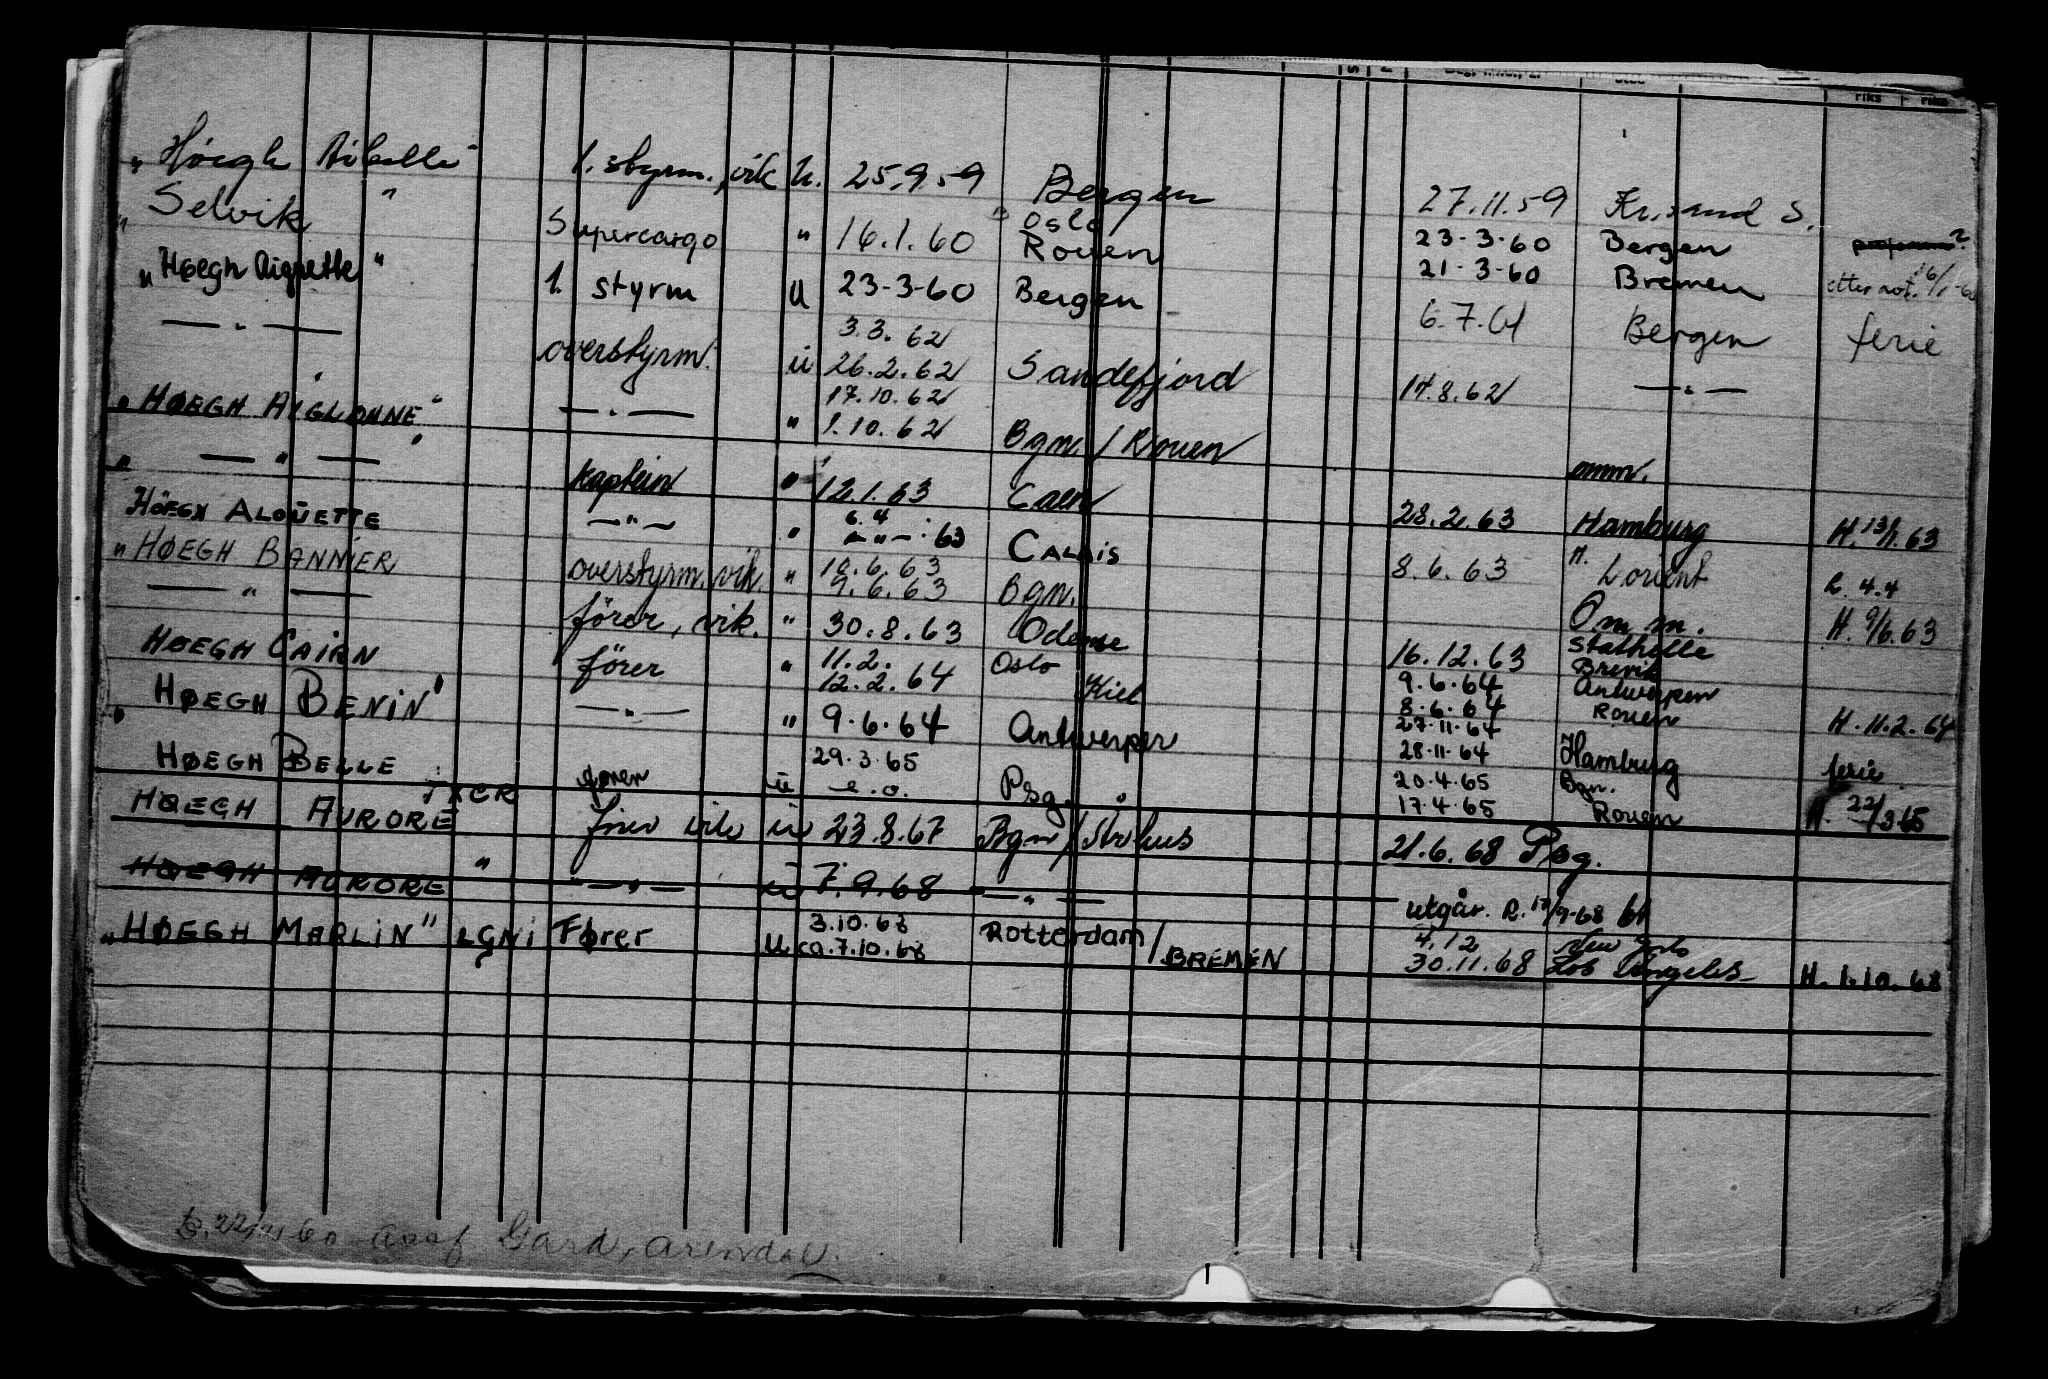 "Höegh 1. styrm., vik u. 25.9.59 Bergen 27.11.59 Kr.sand S.
"Selvik" Supercargo " 16.1.60 Oslo Rouen 23-3-60 Bergen
21-3-60 Bremen etter not. 16/1-60
"Høegh Aigrette" 1. styrm u 23-3-60 Bergen 6.7.61 Bergen ferie
— " — 3.3.62
overstyrm. ü 26.2.62 Sandefjord 17.8.62 — " —
17.10.62
"HØEGH AIGLONNE" — " — " 1.10.62 Bgn. / Rouen omm.
" — " — kaptein " 12.1.63 Caen 28.2.63 Hamburg H. 13/1.63
HÖEGH ALOUETTE — " — " 6.4 — " — .63 CALAIS 8.6.63 Lorient R. 4.4
"HØEGH BANNIER overstyrm. vik. " 10.6.63
9.6.63 Bgn. Omm. H. 9/6.63
— " — förer, vik. " 30.8.63 Odense 16.12.63 Stathelle
Brevik
HØEGH CAIRN förer " 11.2.
12.2.64 Oslo Kiel 9.6.64 Antwerpen
8.6.64 Rouen H. 11.2.64
"HØEGH BENIN" — " — " 9.6.64 Antwerpen 27.11.64
28.11.64 Hamburg ferie
HØEGH BELLE fører ü 29.3.65
e.o. Psg. 20.4.65 Bgn.
17.4.65 Rouen H. 22/3 65
HØEGH AURORE förer vik ü 23.8.67 Bgn / Århus 21.6.68 Psg.
HØEGH AURORE " — " — ü 7.9.68 — " — utgår. R. 17/9-68
"HØEGH MARLIN" LGNI Fører 3.10.68
U ca. 7.10.68 Rotterdam / BREMEN 4.12
30.11.68 Los Angeles H. 1.10.68
Gard, Arendal.